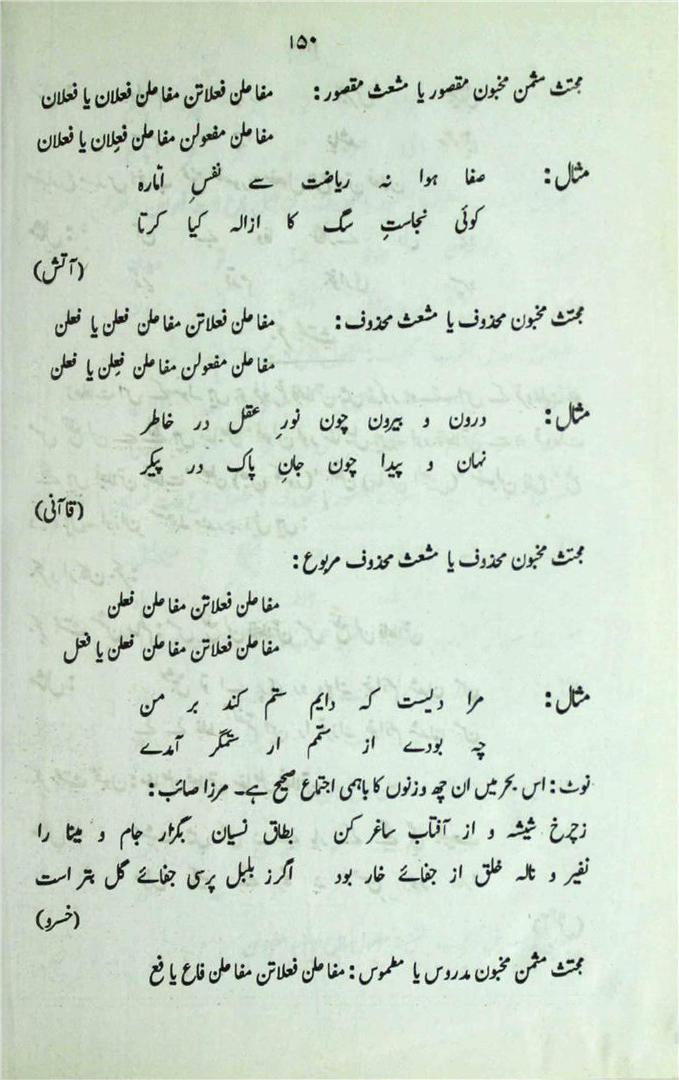 ۱۵۰
مجتث مثمن مخبون مقصور یا مشعث مقصور: مفاعلن فعلاتن مفاعلن فعلان یا فعلان
مفاعلن مفعولن مفاعلن فعِلان یا فعلان
مثال: صفا ہوا نہ ریاضت سے نفسِ امّارہ
کوئی نجاستِ سگ کا ازالہ کیا کرتا
(آتش)
مجتث مخبون محذوف یا مشعث محذوف: مفاعلن فعلاتن مفاعلن فعلن یا فعلن
مفاعلن مفعولن مفاعلن فعِلن یا فعلن
مثال: درون و بیرون چون نورِ عقل در خاطر
نہان و پیدا چون جانِ پاک در پیکر
(قاآنی)
مجتث مخبون محذوف یا مشعث محذوف مربوع:
مفاعلن فعلاتن مفاعلن فعلن
مفاعلن فعلاتن مفاعلن فعلن یا فعل
مثال: مرا دلیست کہ دایم ستم کند بر من
چہ بودے از ستمم ار ستمگر آمدے
نوٹ: اس بحر میں ان چھ وزنوں کا باہمی اجتماع صحیح ہے۔ مرزا صائب:
زچرخ شیشہ و از آفتاب ساغر کن بطاق نسیان بگزار جام و مینا را
نفیر و نالہ خلق از جفائے خار بود اگرز بلبل پرسی جفائے گل بتر است
(خسرو)
مجتث مثمن مخبون مدروس یا مطموس: مفاعلن فعلاتن مفاعلن فاع یا فع